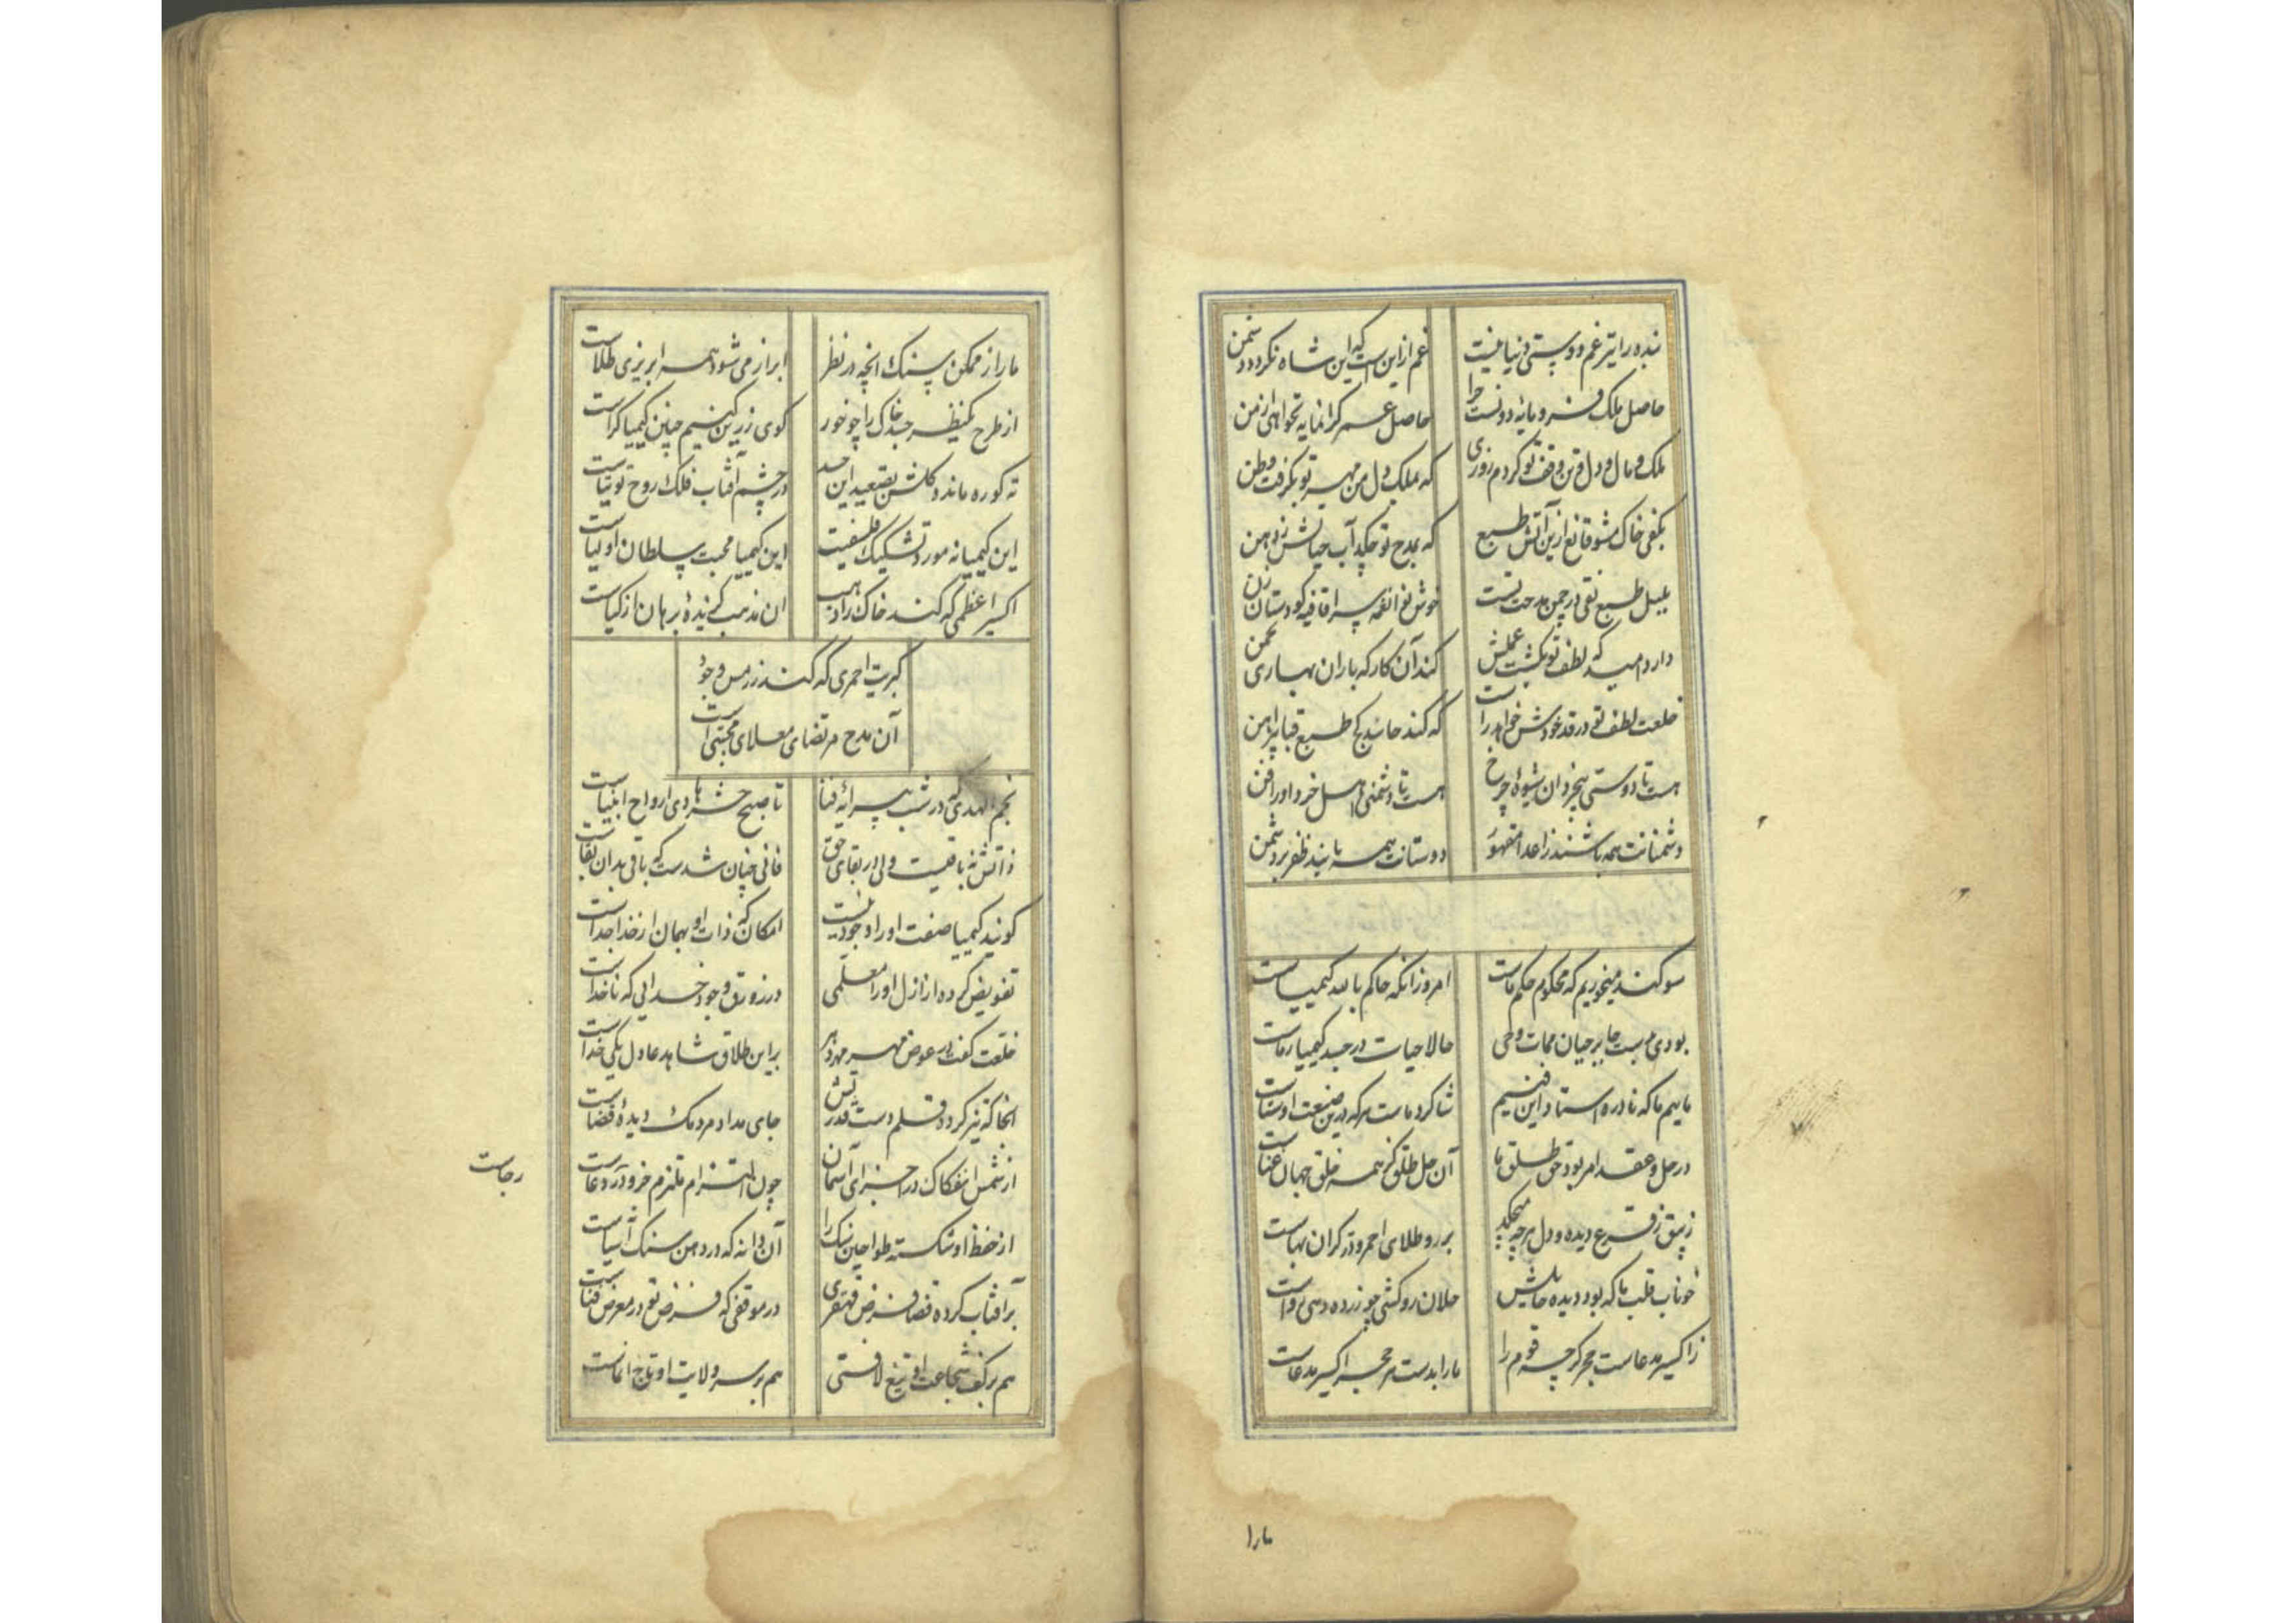 بنده را نیز غم دوستی دنیا نیست
غم از این است که این شاه نکردد دشمن
حاصل ملک فرومایهٔ دونست چرا
حاصل عمر کرانمایه نخواهی از من
ملک و مال و دل و تن وقف تو کردم روزی
که ملک دل من مهر تو بکرفت وطن
بکفی خاک مشو قانع ازین آتش طبع
که بمدح تو چکد آب حیاتش ز دهن
بلبل طبع تقی در چمن مدحت تست
خوش نوا نغمه سرا قافیه کو دستان زن
دارد امید که لطف تو بکشت عملش
کند آن کار که باران بهاری بچمن
خلعت لطف تو در قد خودش خواهد راست
که کند حاسد کج طبع قبا پیراهن
هست تا دوستی بیخردان شیوهٔ چرخ
هست تا دشمنی اهل خرد او را فن
دشمنانت همه باشند ز اعدا مقهور
دوستانت همه یابند ظفر بر دشمن
سوکند میخوریم که محکوم حکم ماست
امروز آنکه حاکم بالله کیمیاست
بودی مربیت جابر حیان ممات وحی
حالا حیات در جسد کیمیا ز ماست
ماییم ما که نادره استاد این فنیم
شاکرد ماست هر که درین صنعت اوستاست
در حل و عقد امر بود حق طلق ما
آن حل طلق کز همه خلق جهان غناست
زیبق ز قرع دیده و دل هر چه میچکد
بر رو طلای احمر و در کران بهاست
خوناب قلب ما که بود دیده حایلش
حلان روکشی چو زر ده دهی رواست
ز اکسیر مدعاست حجر کر چه قوم را
ما را بدست هر حجر اکسیر مدعاست
مارا
ما را ز ممکن سنک آنچه در نظر
ابراز می شود همه ابریزی طلاست
از طرح یکنظر جسد خاک را چو خور
کوی زرین کنیم چنین کیمیا کراست
ته کوره ماند کلشن بتصعید این جسد
در چشم آفتاب فلک روح توتیاست
این کیمیا نه مورد تشکیک فلسفیست
این کیمیا محبت سلطان اولیاست
اکسیر اعظمی که کند خاک را ذهب
آن مذهب کزیدهٔ برهان ازکیاست
کبریت احمری که کند زر مس وجود
آن مدح مرتضای معلای مجتبی است
نجم الهدی که در شب پیرایهٔ فنا
تا صبح حشر هادی ارواح انبیاست
ذاتش نه باقیست ولی در بقای حق
فانی چنان شدست که باقی بدان بقاست
کویند کیمیا صفت او را وجود نیست
امکان که ذات او بهمان از خدا جداست
تفویض کرده از ازل او را معلمی
در زورق وجود خدایی که ناخداست
خلعت کفت در عوض مهر مهر دهر
بر این طلاق شاهد عادل یکی خداست
آنجا که نیز کردد قلم دست قدرتش
جای مداد مردمک دیدهٔ قضاست
از شمس انفکاک در اجزای آسمان
چون التزام ملتزم خرود آر دعاست
رجاست
از حفظ او شکسته طواحین نیک را
آن دانه که در دهن سنک آسیاست
بر آفتاب کرده قضا فرض قهقری
در موقفی که فرض تو در معرض قناست
هم بر کف شجاعت او تیغ لافتی
هم بر سر ولایت او تاج انماست